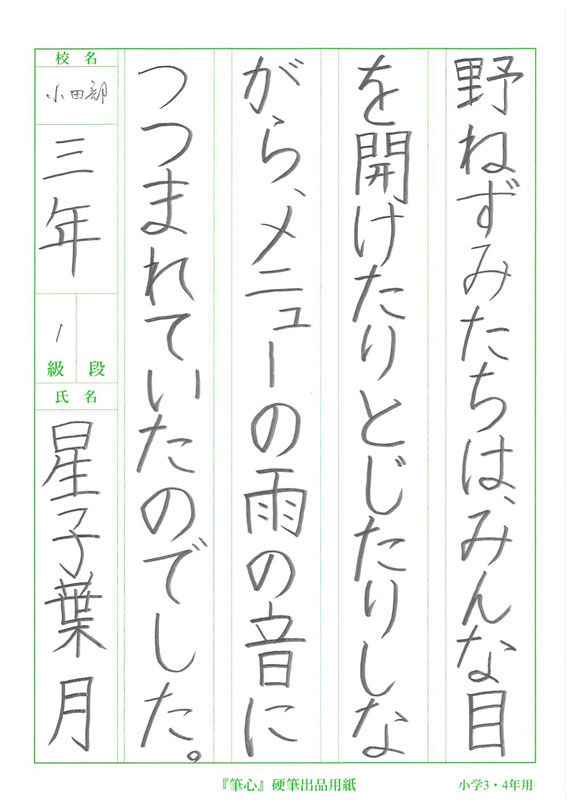 野ねずみたちは、みんな目
を開けたりとじたりしな
がら、メニューの雨の音に
つつまれていたのでした。
校名
小田部
三年
1
級 段
氏名
星子葉月
『筆心』硬筆出品用紙
小学3・4年用